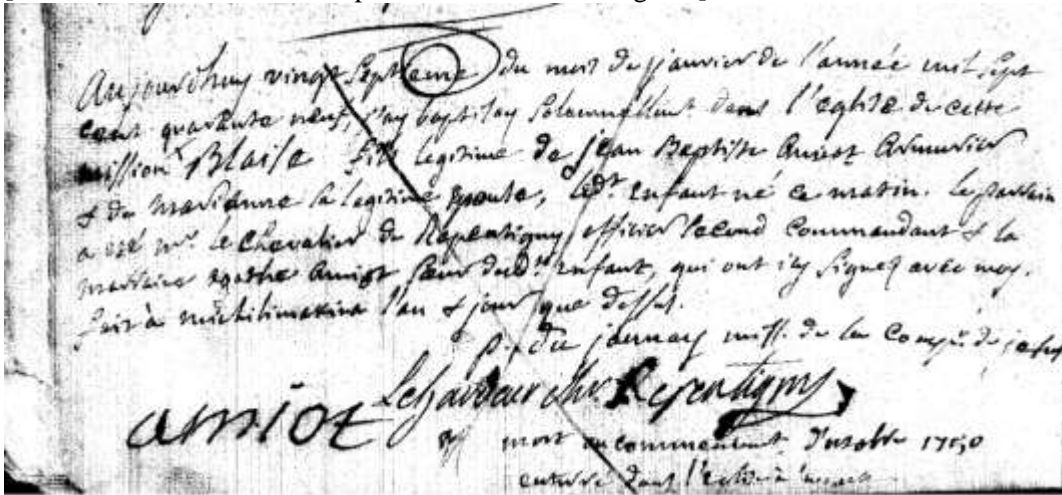 Aujourdhuy vingt septieme du mois de janvier de l'année mil sept
cent quarante neuf, j'ay baptisay solemnellemt. dans l'eglise de cette
mission Blaise fils legitime de jean Baptiste Amiot Armurier
& de marianne sa legitime epouse, ledt. enfant né ce matin. le parrain
a eté mr. le chevalier de Repentigny officier second commandant & la
marraine agathe Amiot soeur dudt. enfant, qui ont icy signez avec moy.
fait à michilimakina l'an & jour que dessus.
p. du jaunay miss. de la compe. de jesus
Legardeur chr. Repentigny
amiot
mort au commencemt. d'octobre 1750
enterré dans l'eglise